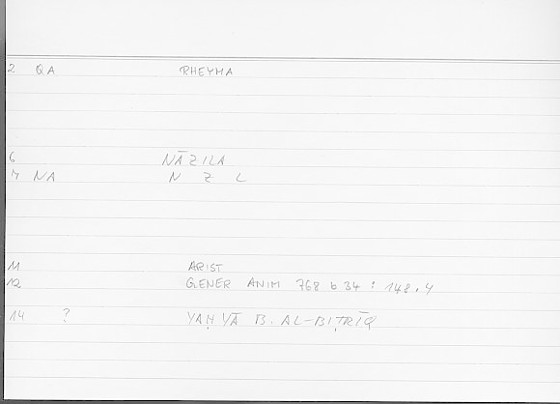 2 QA RHEYMA
6 NĀZILA
7 NA N Z L
11 ARIST
12 GENER ANIM 768 b 34 : 148,4
14 ? YAḤYĀ B. AL-BIṬRĪQ